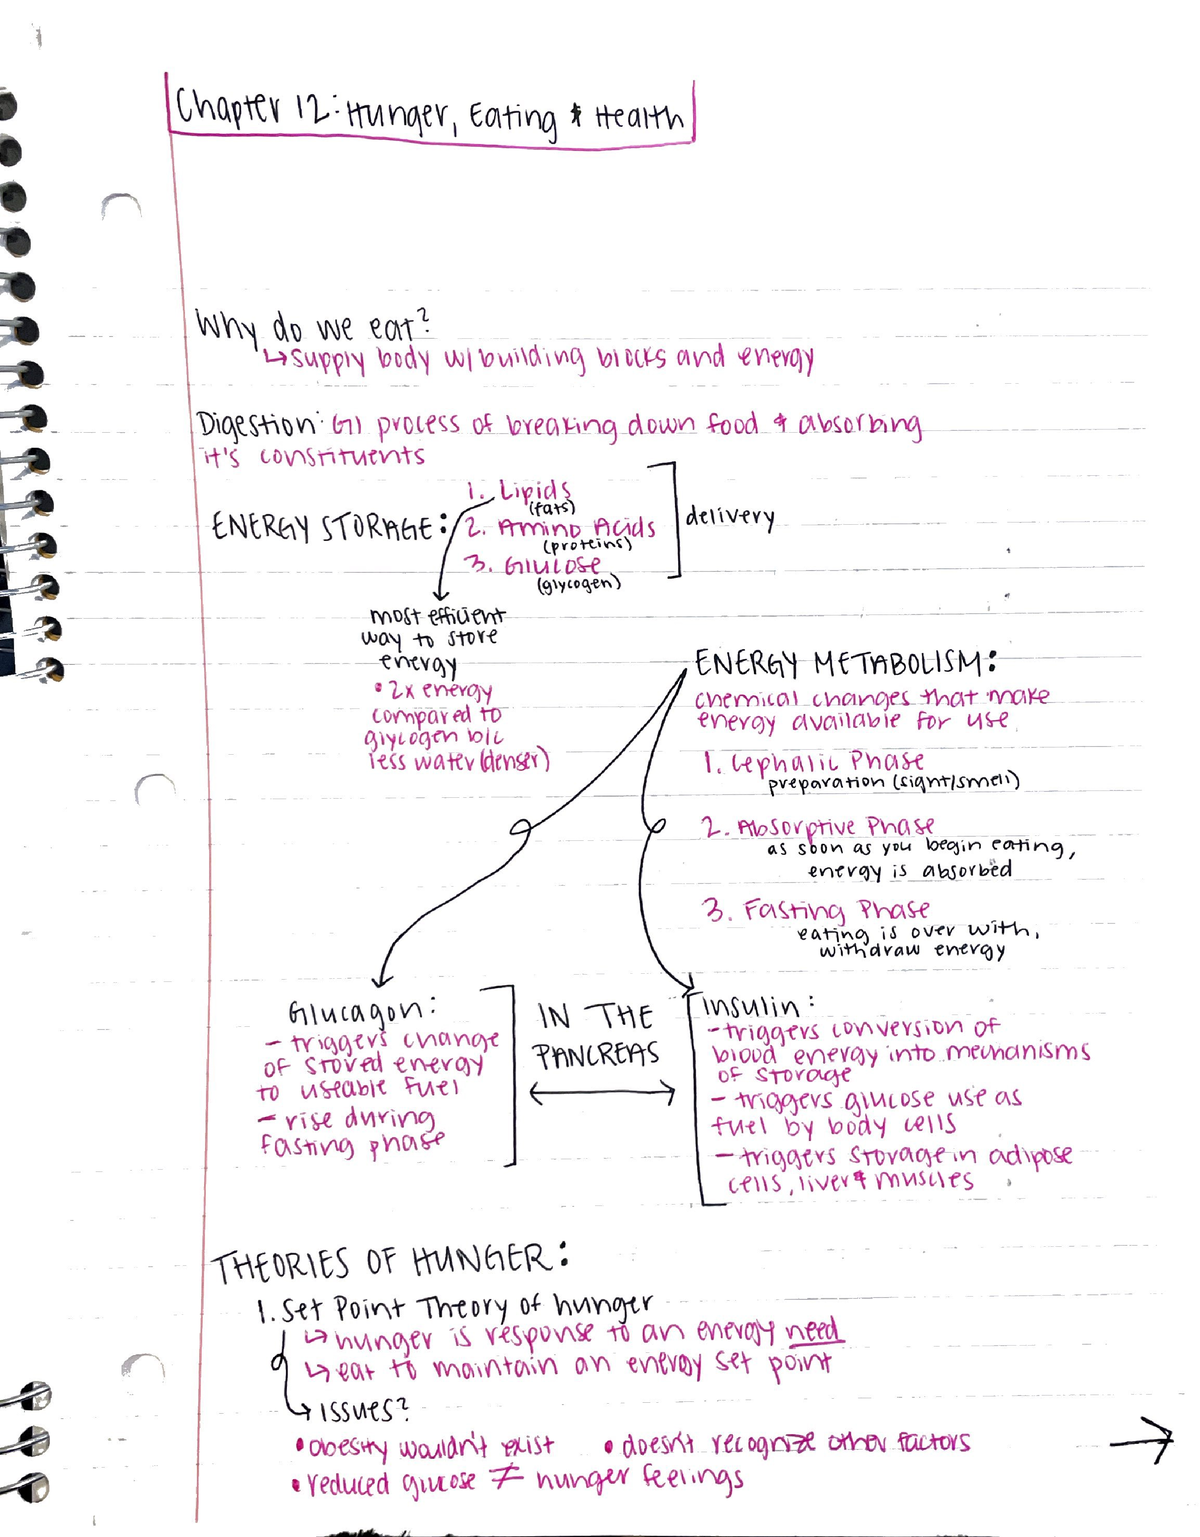 Chapter 12: Hunger, Eating & Health
Why do we eat?
↳ supply body w/ building blocks and energy
Digestion: GI process of breaking down food & absorbing
it's constituents
ENERGY STORAGE:
1. Lipids
(fats)
2. Amino Acids
(proteins)
3. Glucose
(glycogen)
delivery
most efficient
way to store
energy
• 2x energy
compared to
glycogen b/c
less water (denser)
ENERGY METABOLISM:
chemical changes that make
energy available for use
1. Cephalic Phase
preparation (sight/smell)
2. Absorptive Phase
as soon as you begin eating,
energy is absorbed
3. Fasting Phase
eating is over with,
withdraw energy
Glucagon:
- triggers change
of stored energy
to useable fuel
- rise during
fasting phase
IN THE
PANCREAS
Insulin:
- triggers conversion of
blood energy into mechanisms
of storage
- triggers glucose use as
fuel by body cells
- triggers storage in adipose
cells, liver & muscles
THEORIES OF HUNGER:
1. Set Point Theory of hunger
↳ hunger is response to an energy need
↳ eat to maintain an energy set point
↳ issues?
• obesity wouldn't exist • doesn't recognize other factors
• reduced glucose ≠ hunger feelings
→